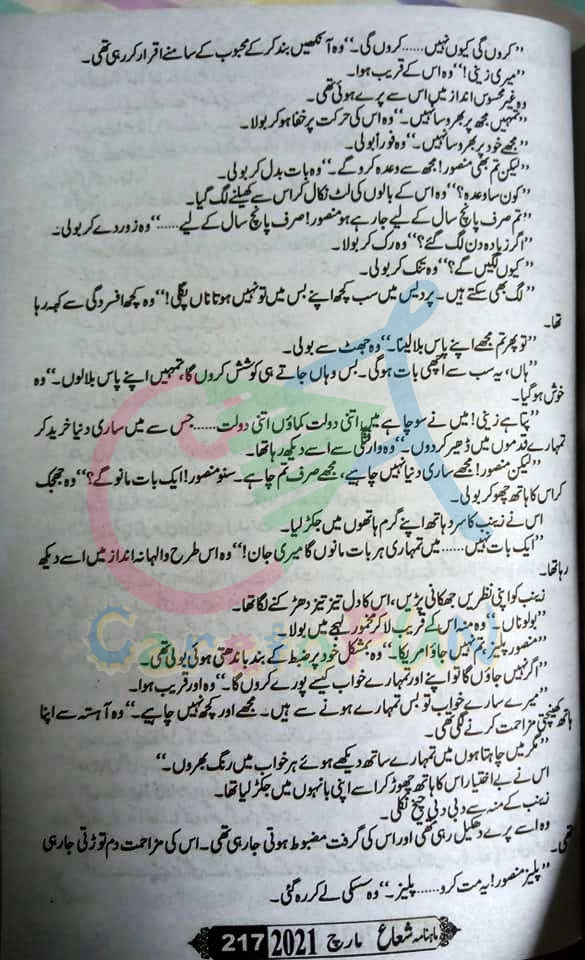 ”کروں گی کیوں نہیں...... کروں گی۔“ وہ آنکھیں بند کر کے محبوب کے سامنے اقرار کر رہی تھی۔
”میری زینی!“ وہ اس کے قریب ہوا۔
وہ غیر محسوس انداز میں اس سے پرے ہوئی تھی۔
”تمہیں مجھ پر بھروسا نہیں۔“ وہ اس کی حرکت پر خفا ہو کر بولا۔
”مجھے خود پر بھروسا نہیں۔“ وہ فوراً بولی۔
”لیکن تم بھی منصور! مجھ سے وعدہ کرو گے۔“ وہ بات بدل کر بولی۔
”کون سا وعدہ؟“ وہ اس کے بالوں کی لٹ نکال کر اس سے کھیلنے لگ گیا۔
”تم صرف پانچ سال کے لیے جا رہے ہو منصور! صرف پانچ سال کے لیے......“ وہ زور دے کر بولی۔
”اگر زیادہ دن لگ گئے؟“ وہ رک کر بولا۔
”کیوں لگیں گے؟“ وہ تنک کر بولی۔
”لگ بھی سکتے ہیں۔ پردیس میں سب کچھ اپنے بس میں تو نہیں ہوتا ناں پگلی!“ وہ کچھ افسردگی سے کہہ رہا
تھا۔
”تو پھر تم مجھے اپنے پاس بلا لینا۔“ وہ جھٹ سے بولی۔
”ہاں، یہ سب سے اچھی بات ہوگی۔ بس وہاں جاتے ہی کوشش کروں گا، تمہیں اپنے پاس بلا لوں۔“ وہ
خوش ہو گیا۔
”پتا ہے زینی! میں نے سوچا ہے میں اتنی دولت کماؤں اتنی دولت...... جس سے میں ساری دنیا خرید کر
تمہارے قدموں میں ڈھیر کر دوں۔“ وہ وارفتگی سے اسے دیکھ رہا تھا۔
”لیکن منصور! مجھے ساری دنیا نہیں چاہیے، مجھے صرف تم چاہیے۔ سنو منصور! ایک بات مانو گے؟“ وہ جھجک
کر اس کا ہاتھ چھو کر بولی۔
اس نے زینب کا سرد ہاتھ اپنے گرم ہاتھوں میں جکڑ لیا۔
”ایک بات نہیں...... میں تمہاری ہر بات مانوں گا میری جان!“ وہ اس طرح والہانہ انداز میں اسے دیکھ
رہا تھا۔
زینب کو اپنی نظریں جھکانی پڑیں، اس کا دل تیز تیز دھڑکنے لگا تھا۔
”بولو ناں۔“ وہ منہ اس کے قریب لا کر مخمور لہجے میں بولا۔
”منصور پلیز، تم نہیں جاؤ امریکا۔“ وہ بمشکل خود پر ضبط کے بند باندھتی ہوئی بولی تھی۔
”اگر نہیں جاؤں گا تو اپنے اور تمہارے خواب کیسے پورے کروں گا۔“ وہ اور قریب ہوا۔
”میرے سارے خواب تو بس تمہارے ہونے سے ہیں۔ مجھے اور کچھ نہیں چاہیے۔“ وہ آہستہ سے اپنا
ہاتھ کھینچتی مزاحمت کرنے لگی تھی۔
”مگر میں چاہتا ہوں میں تمہارے ساتھ دیکھے ہوئے ہر خواب میں رنگ بھروں۔“
اس نے بے اختیار اس کا ہاتھ چھوڑ کر اسے اپنی بانہوں میں جکڑ لیا تھا۔
زینب کے منہ سے دبی دبی چیخ نکلی۔
وہ اسے پرے دھکیل رہی تھی اور اس کی گرفت مضبوط ہوتی جا رہی تھی۔ اس کی مزاحمت دم توڑتی جا رہی
تھی۔
”پلیز منصور! یہ مت کرو...... پلیز۔“ وہ سسکی لے کر رہ گئی۔
ماہنامہ شعاع مارچ 2021 217